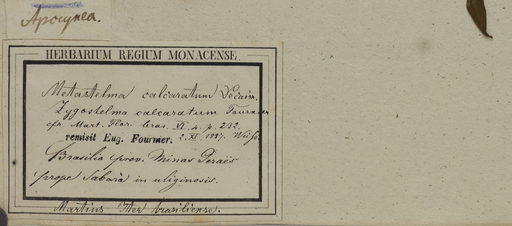 Apocynea.
HERBARIUM REGIUM MONACENSE
Metastelma calcaratum Decaisn.
Zygostelma calcaratum Fournier
cfr. Mart. Flor. bras. VI. 4. p. 232.
remisit Eug. Fournier. 2. XI. 1887.
Brasilia prov. Minas Geraës
prope Sabarà in uliginosis.
Martius Iter brasiliense.